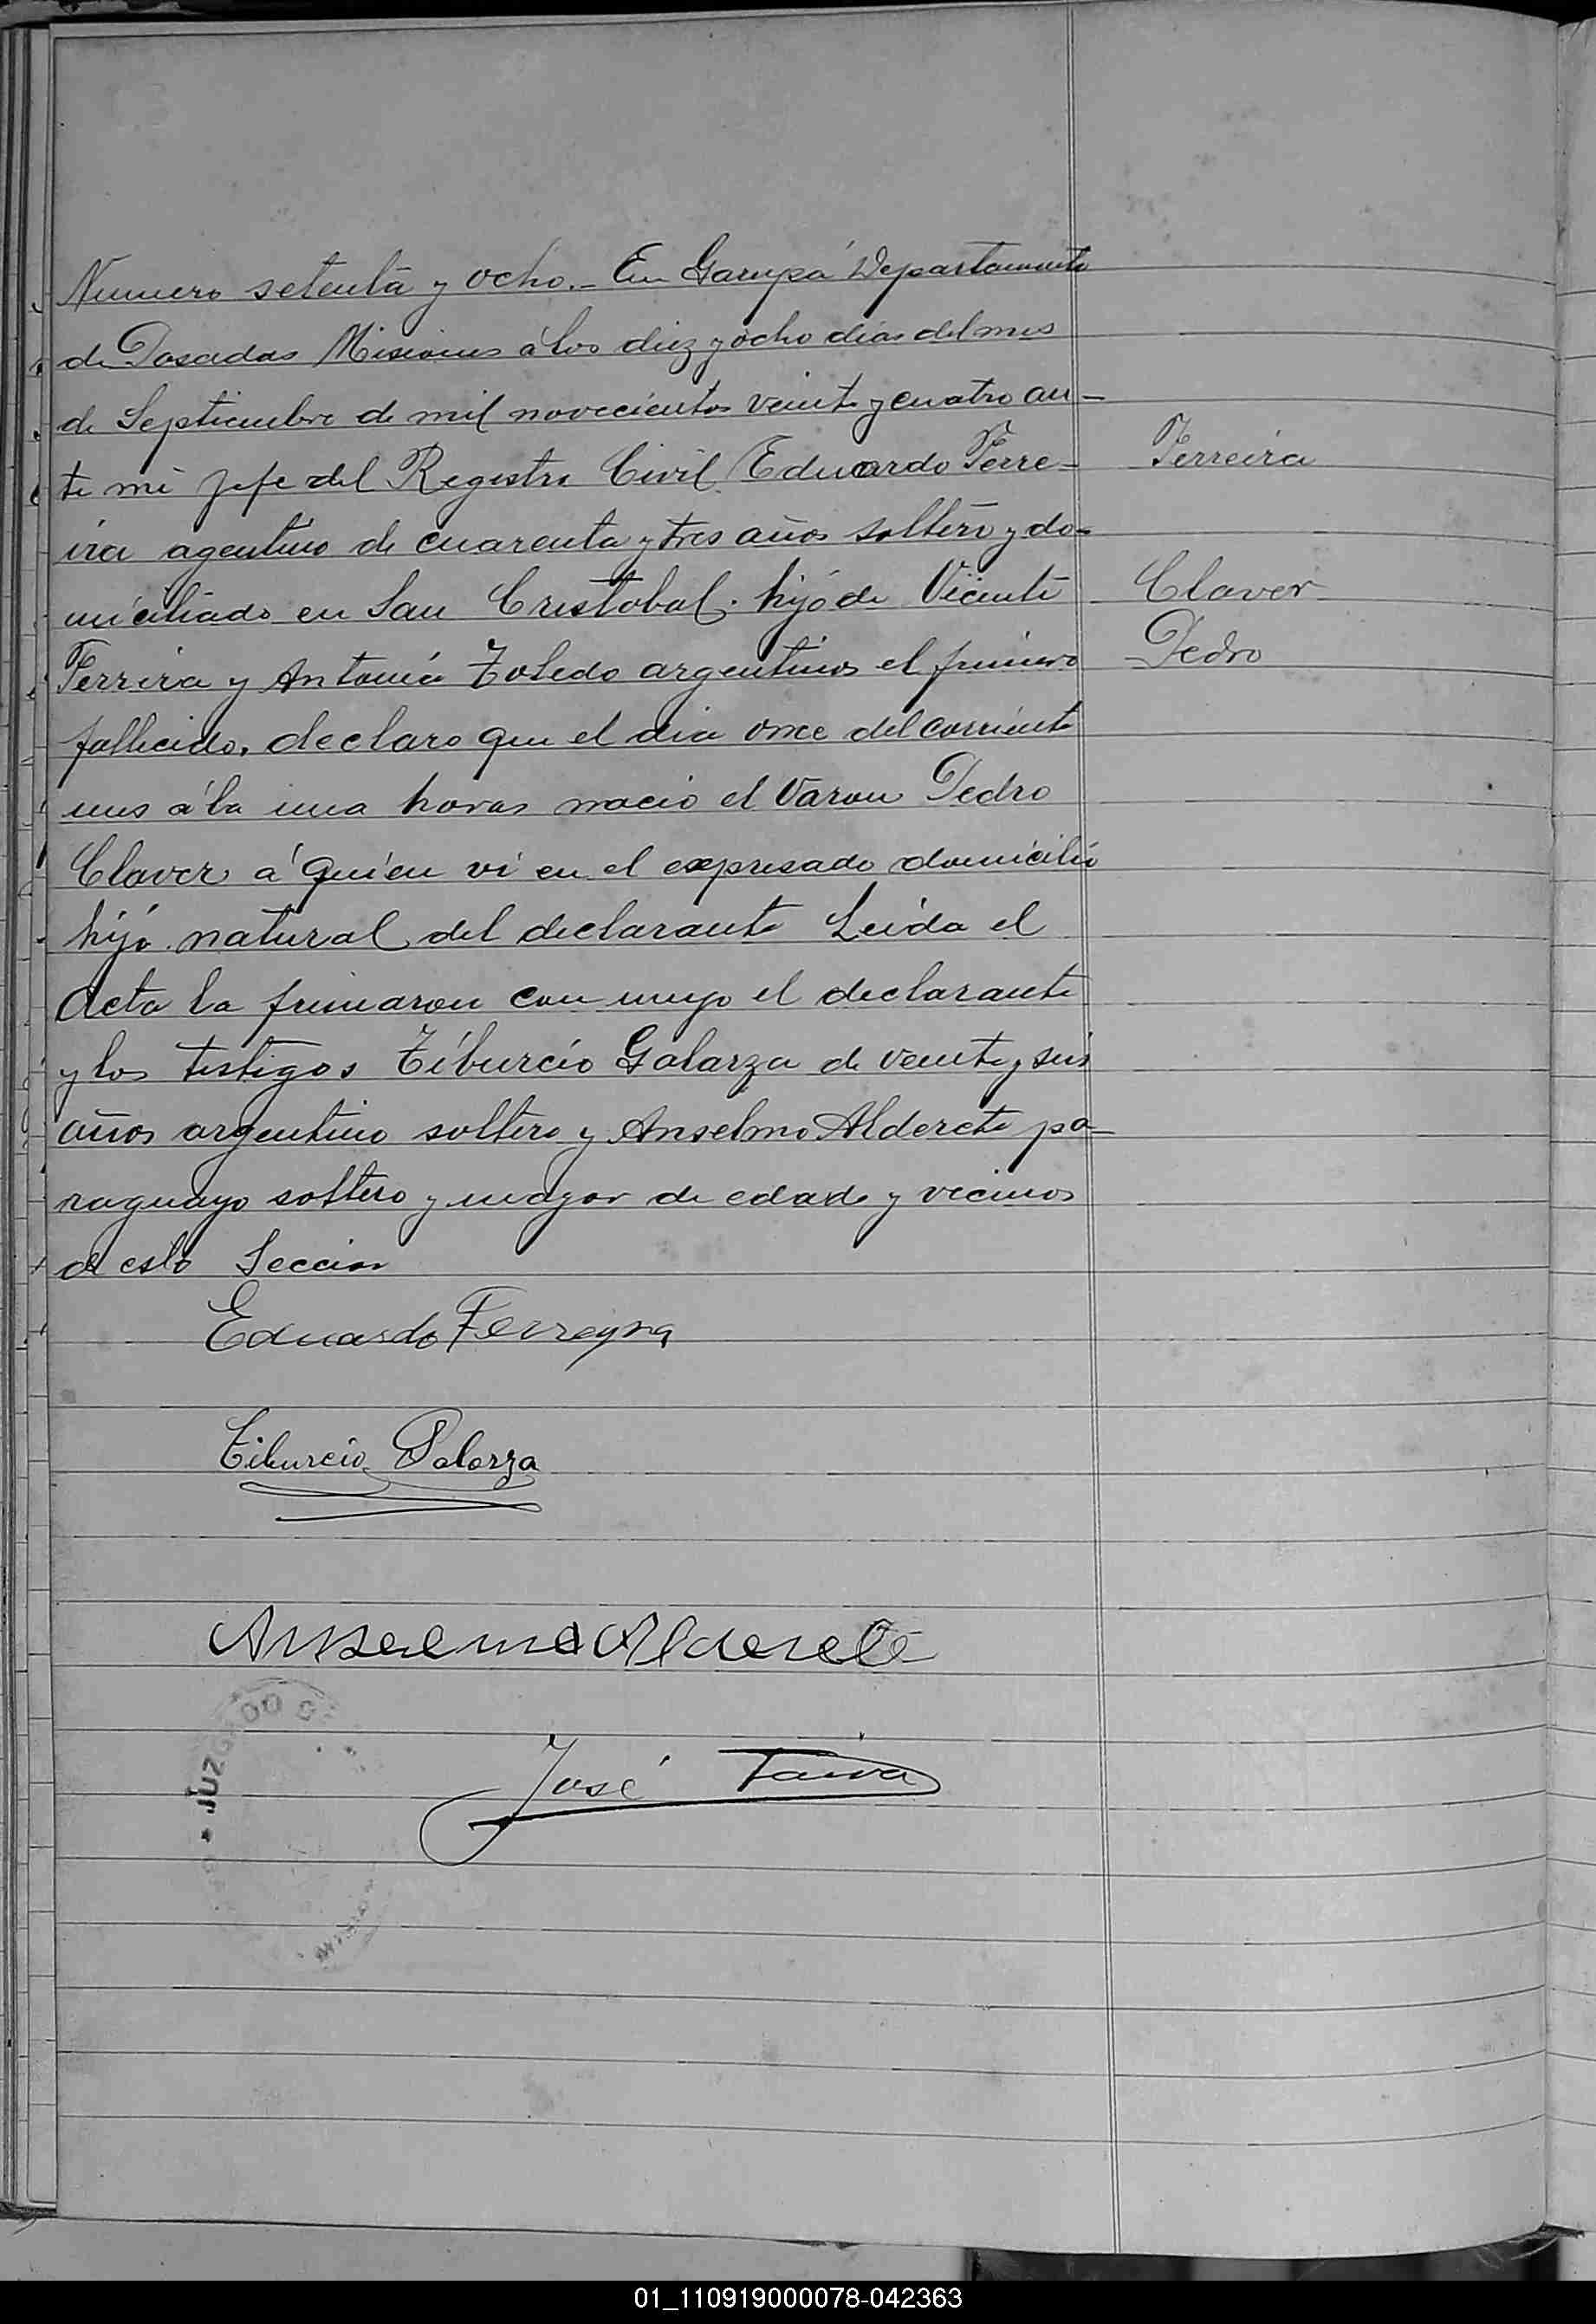 Numero setenta y ocho.- En Garupá Departamento
de Posadas Misiones á los diez y ocho dias del mes
de Septiembre de mil novecientos veinte y cuatro an-
te mi Jefe del Registro Civil Eduardo Ferre-
ira agentino de cuarenta y tres años soltero y do-
miciliado en San Cristobal. hijo de Vicente
Ferreira y Antonia Toledo argentinos el primero
fallecido, declaro que el dia once del corriente
mes á la una horas nacio el Varon Pedro
Claver á quien vi en el expresado domicilio
hijo natural del declarante Leida el
Acta la firmaron con migo el declarante
y los testigos Tiburcio Galarza de veinte y seis
años argentino soltero y Anselmo Alderete pa-
raguayo soltero y mayor de edad y vecinos
de esta Seccion
Ferreira
Claver
Pedro
Eduardo Ferreyra
Tiburcio Galarza
Anselmo Alderete
José Paiva
JUZGADO DE
01_110919000078-042363